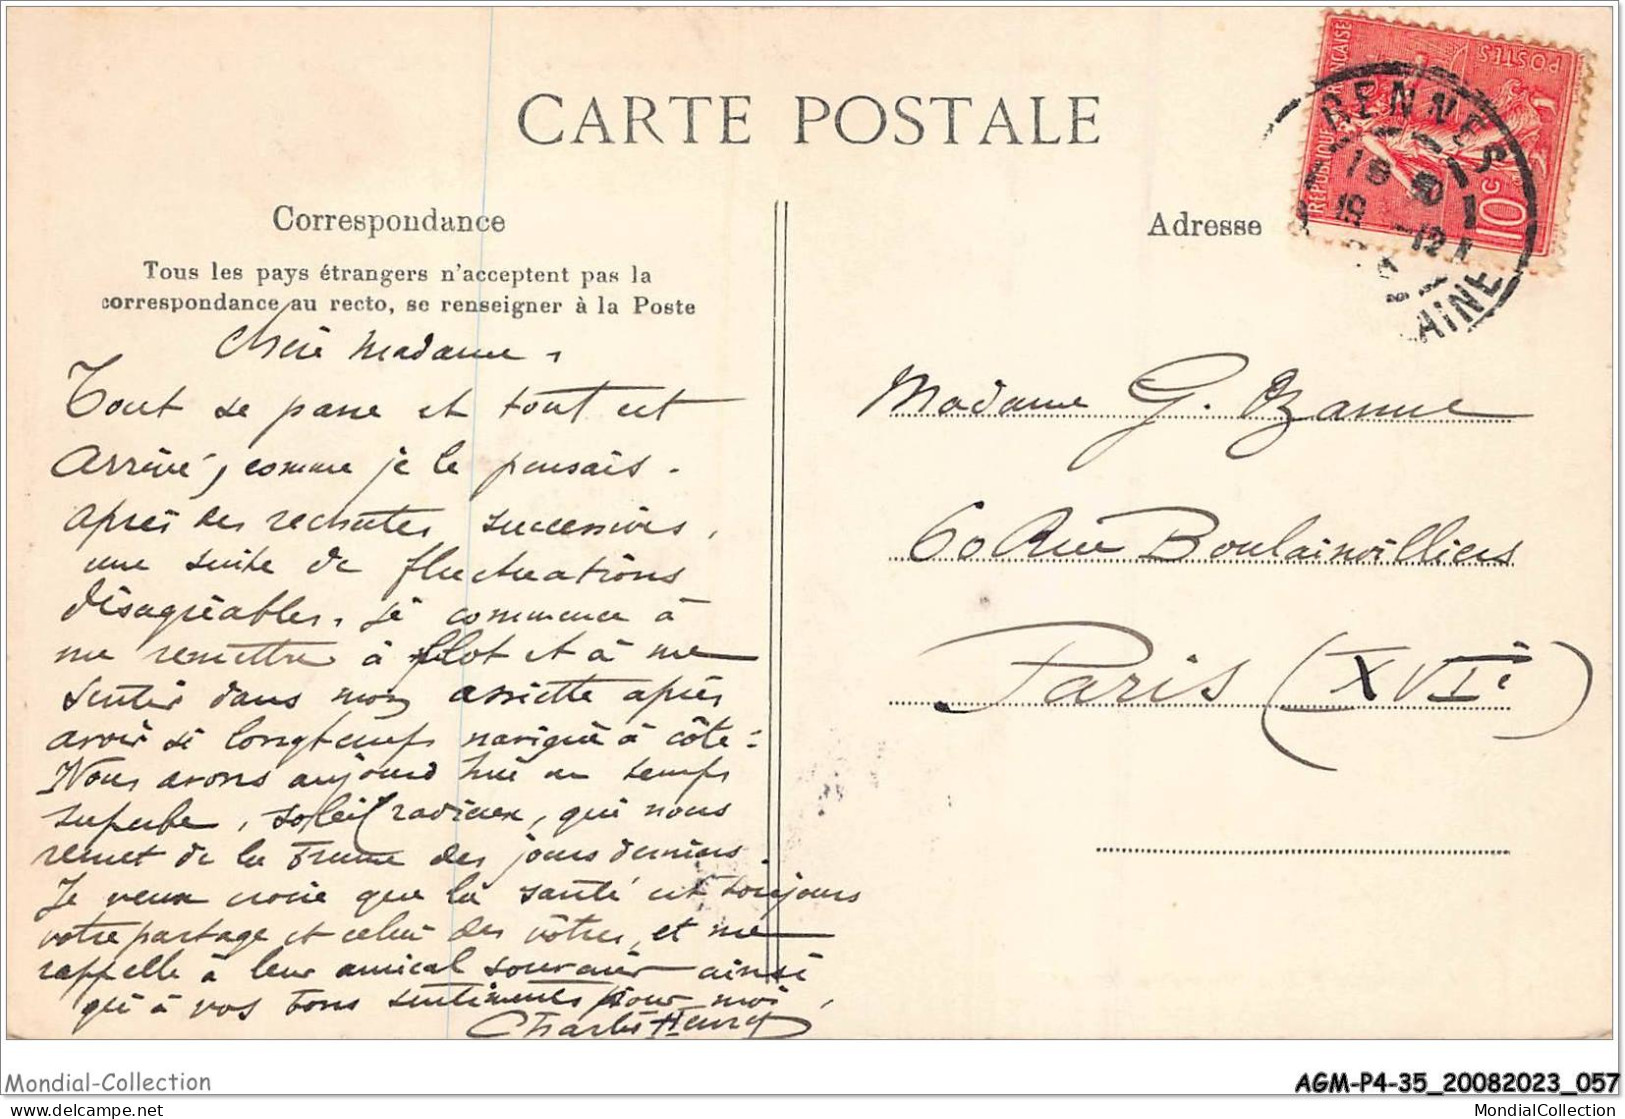 CARTE POSTALE
Correspondance
Tous les pays étrangers n'acceptent pas la
correspondance au recto, se renseigner à la Poste
Chère Madame,
Tout se passe et tout est
arrivé, comme je le pensais.
après des rechutes successives,
une suite de fluctuations
désagréables, je commence à
me remettre à flot et à me
sentir dans mon assiette après
avoir si longtemps navigué à côté :
Nous avons aujourd'hui un temps
superbe, soleil radieux, qui nous
remet de la brume des jours derniers.
Je veux croire que la santé est toujours
votre partage et celui des vôtres, et me
rappelle à leur amical souvenir ainsi
qu'à vos bons sentiments pour moi,
Charles Henry
Adresse
REPUBLIQUE FRANÇAISE
POSTES
10c
RENNES
12
AINE
Madame G. Ozanne
60 Rue Boulainvilliers
Paris (XVIe)
Mondial-Collection
AGM-P4-35_20082023_057
www.delcampe.net
MondialCollection